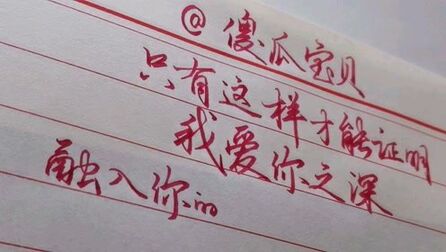 @傻瓜宝贝
只有这样才能证明
我爱你之深
融入你的